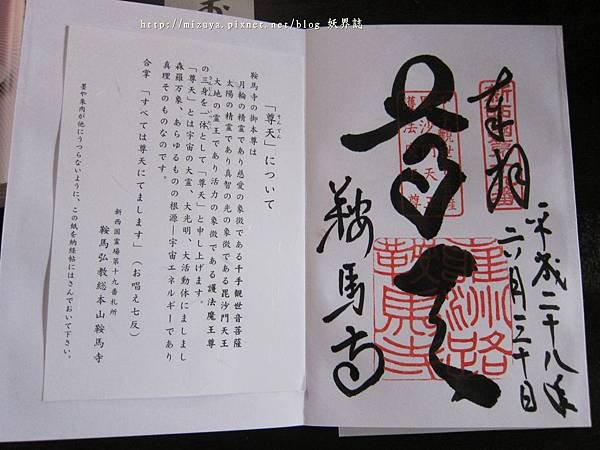 http://mizuya.pixnet.net/blog 妖界誌
「尊天」について
鞍馬寺の御本尊は
月輪の精霊であり慈愛の象徴である千手観世音菩薩
太陽の精霊であり真智の光の象徴である毘沙門天王
大地の霊王であり活力の象徴である護法魔王尊
の三身を一体として「尊天」と申し上げます。
「尊天」とは宇宙の大霊、大光明、大活動体にましまし
森羅万象、あらゆるものの根源―宇宙エネルギーであり
真理そのものなのです。
合掌「すべては尊天にてまします」(お唱え七反)
新西国霊場第十九番札所
鞍馬弘教総本山鞍馬寺
墨や朱肉が他にうつらないように、この紙を納経帖にはさんでおいて下さい。
奉拝
平成二十八年
六月三十日
尊天
鞍馬寺